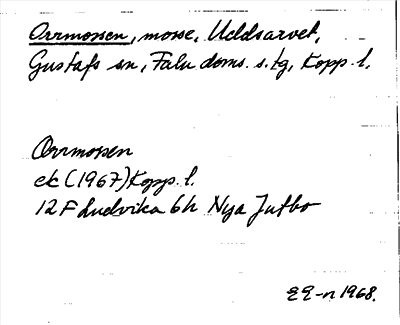 Orrmossen, mosse, Uddsarvet,
Gustafs sn, Falu doms. s. tg, Kopp. l.
Orrmossen
ek (1967) Kopp. l.
12 F Ludvika 6h Nya Jutbo
EE-n 1968.